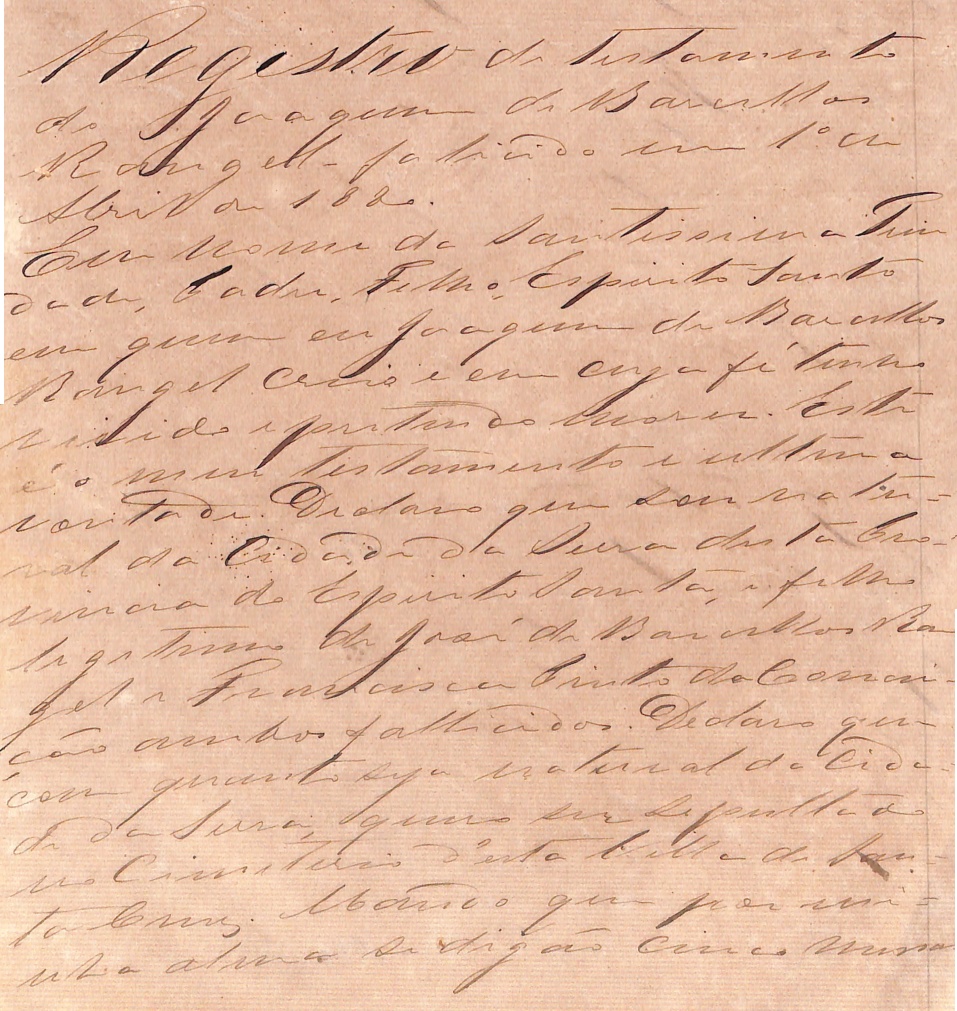 Registro do testamento
de Joaquim de Barcellos
Rangel fallicido em 1º de
Abril de 1880.
Em nome da Santissima Trin
dade, Padre, Filho, Espirito Santo
em quem eu Joaquim de Barcellos
Rangel creio e em cuja fé tenho
vivido e pretendo morer. Este
é o meu testamento e ultima
vontade. Declaro que sou natu=
ral da Cidade da Serra desta Pro=
vincia do Espirito Santo, e filho
legitimo de José de Barcellos Ran
gel e Francisca Pinto da Concei-
ção ambos fallicidos. Declaro que
com quanto seja natural da Cida=
de da Serra, quero ser sepultado
no Cimiterio d'esta Villa de San=
ta Cruz. Mando que por mi=
nha alma se digão cinco missas